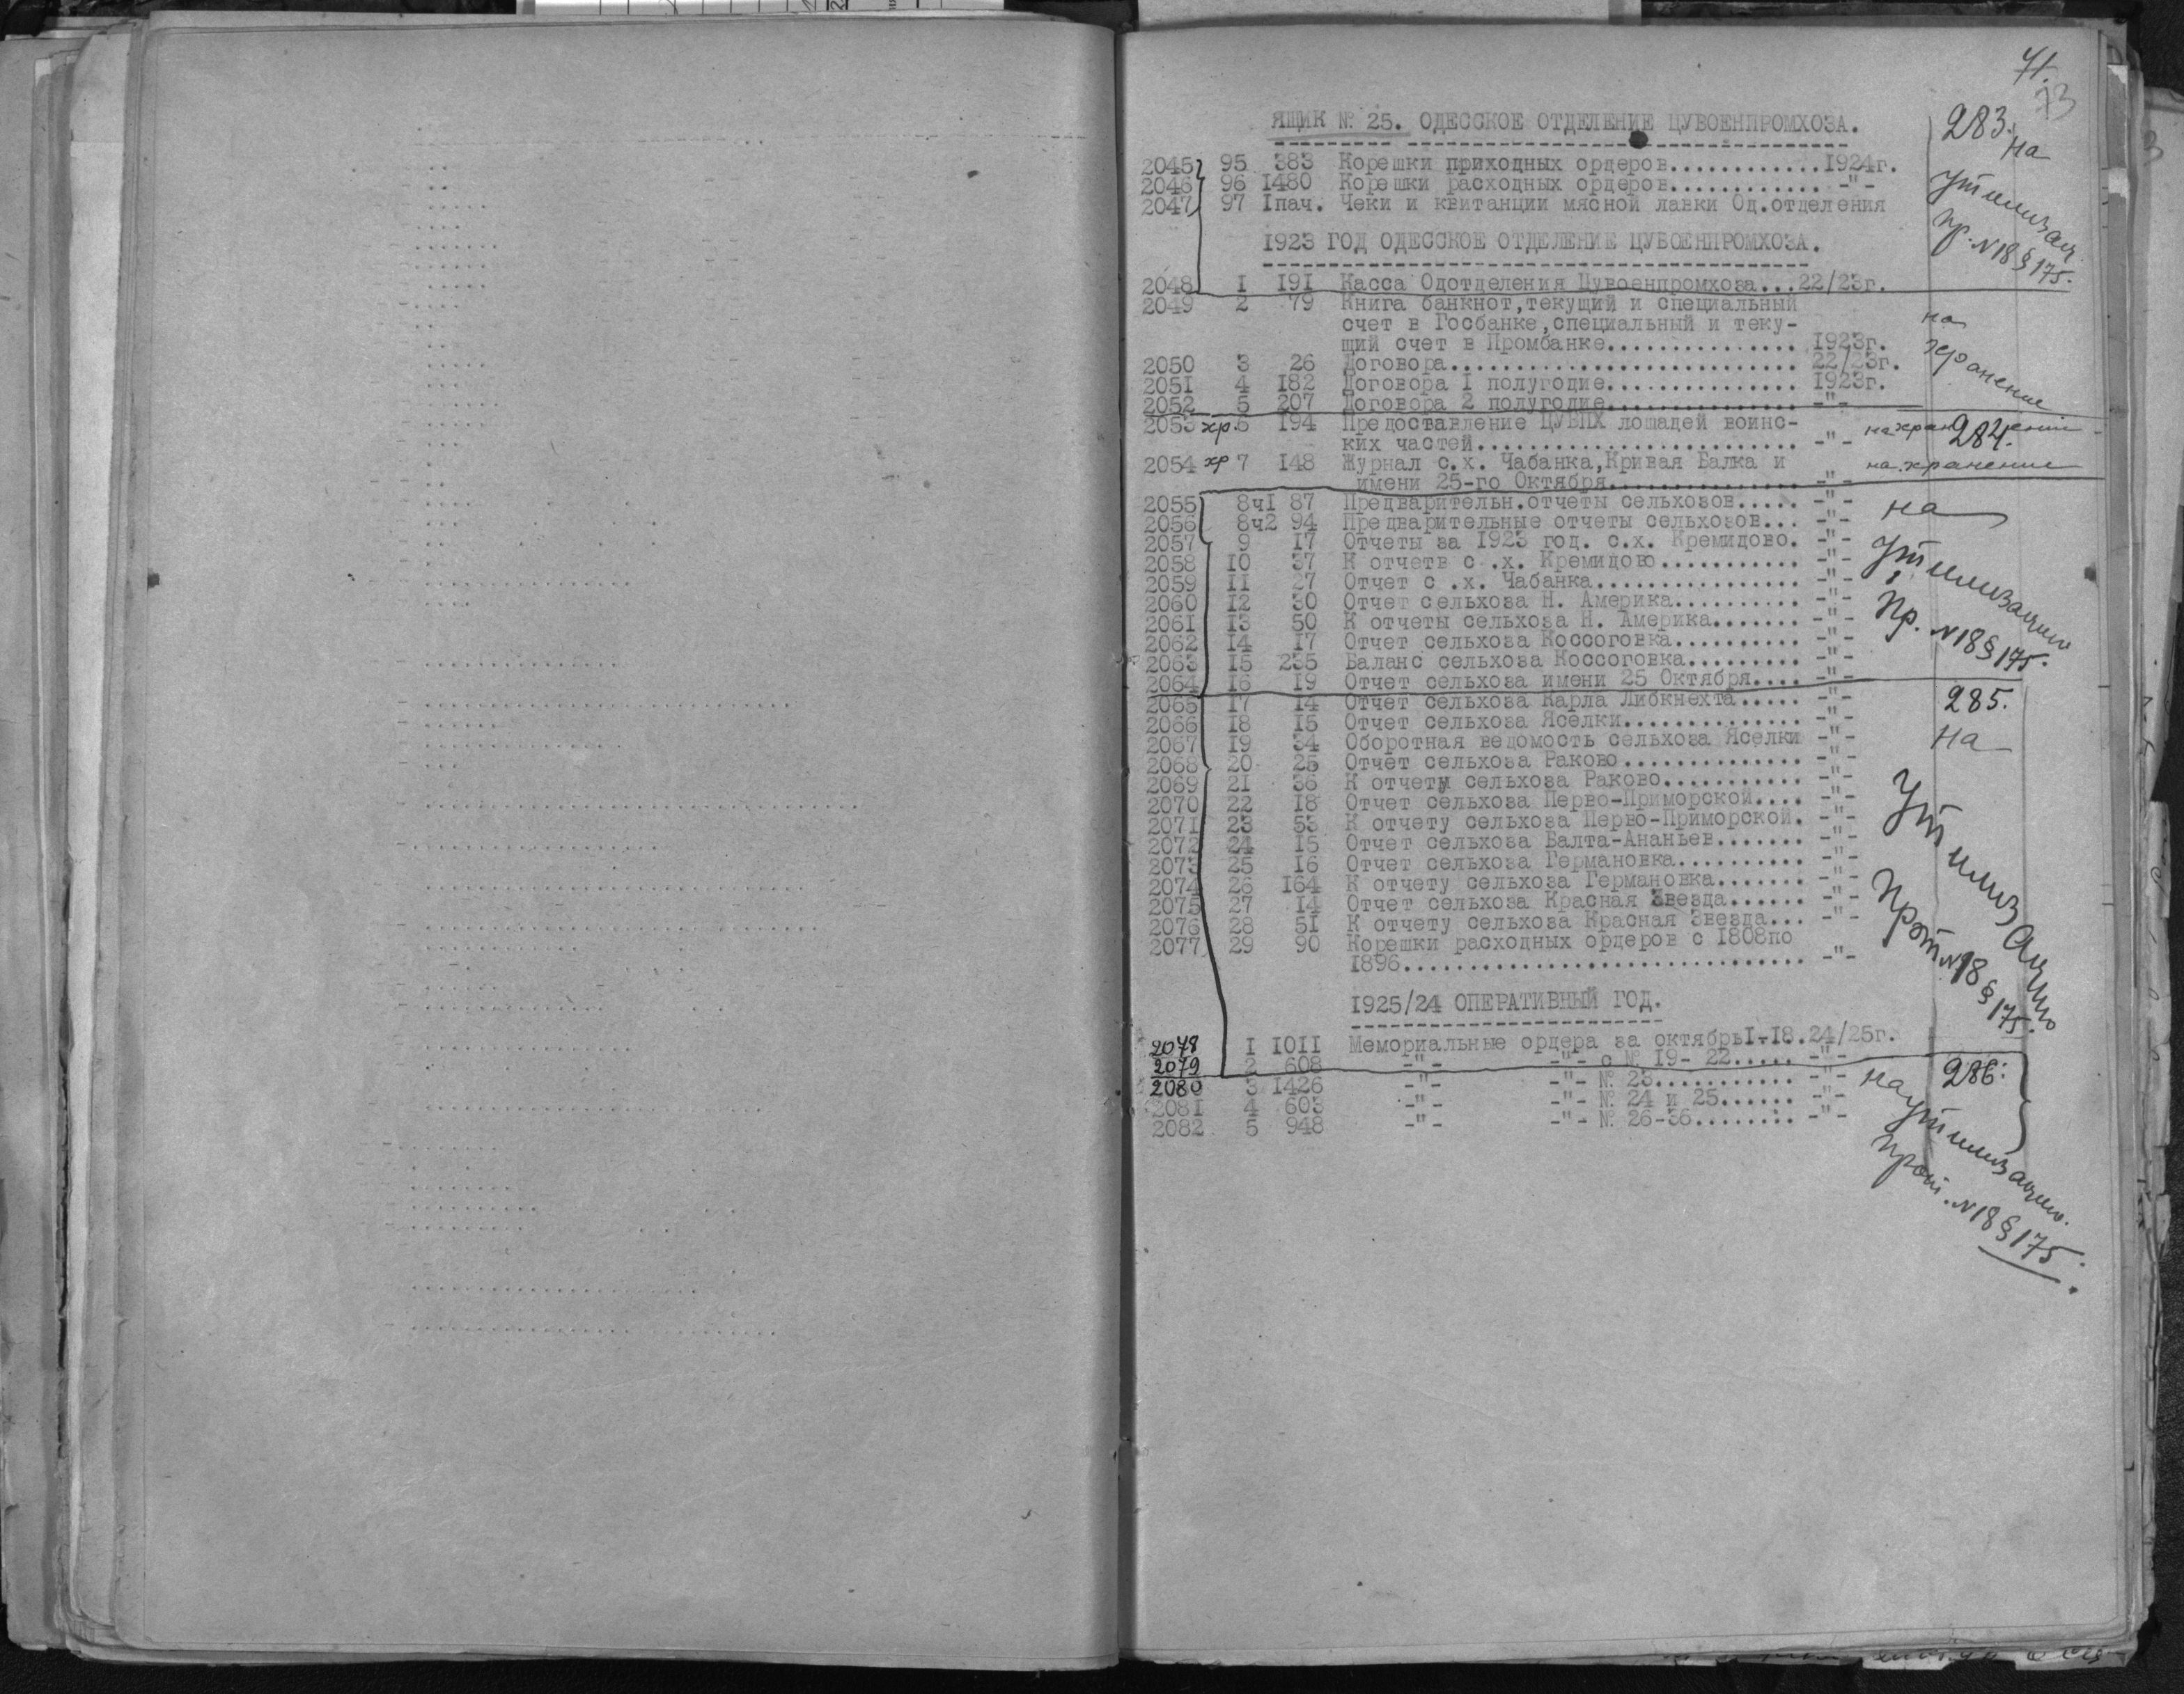 41.
73
ЯЩИК № 25. ОДЕССКОЕ ОТДЕЛЕНИЕ ЦУВОЕНПРОМХОЗА.
283. на
утилизац.
пр. N18 § 175.
2045 95 383 Корешки приходных ордеров............1924г.
2046 96 I480 Корешки расходных ордеров............ -"-
2047 97 Iпач. Чеки и квитанции мясной лавки Од.отделения
I923 ГОД ОДЕССКОЕ ОТДЕЛЕНИЕ ЦУВОЕНПРОМХОЗА.
2048 I I9I Касса Одотделения Цувоенпромхоза...22/23г.
2049 2 79 Книга банкнот,текущий и специальный
счет в Госбанке,специальный и теку-
щий счет в Промбанке............... I923г.
на
хранение
2050 3 26 Договора........................... 22/23г.
205I 4 I82 Договора I полугодие............... I923г.
2052 5 207 Договора 2 полугодие............... -"-
2053 хр. 6 I94 Предоставление ЦУВПХ лошадей воинс-
ких частей......................... -"- на хранении
284.
2054 хр 7 I48 Журнал с.х. Чабанка,Кривая Балка и
имени 25-го Октября............... -"- на хранение
2055 8чI 87 Предварительн.отчеты сельхозов..... -"-
2056 8ч2 94 Предварительные отчеты сельхозов... -"-
2057 9 I7 Отчеты за I923 год. с.х. Кремидово. -"-
2058 I0 37 К отчетв с .х. Кремидою........... -"-
2059 II 27 Отчет с .х. Чабанка................ -"-
2060 I2 30 Отчет сельхоза Н. Америка.......... -"-
206I I3 50 К отчеты сельхоза Н. Америка....... -"-
2062 I4 I7 Отчет сельхоза Коссоговка.......... -"-
2063 I5 235 Баланс сельхоза Коссоговка......... -"-
2064 I6 I9 Отчет сельхоза имени 25 Октября.... -"-
на
утилизацию
Пр. N18 § 175.
2065 I7 I4 Отчет сельхоза Карла Либкнехта..... -"-
2066 I8 I5 Отчет сельхоза Яселки.............. -"-
2067 I9 34 Оборотная ведомость сельхоза Яселки -"-
2068 20 25 Отчет сельхоза Раково.............. -"-
2069 2I 36 К отчету сельхоза Раково........... -"-
2070 22 I8 Отчет сельхоза Перво-Приморской.... -"-
207I 23 53 К отчету сельхоза Перво-Приморской. -"-
2072 24 I5 Отчет сельхоза Балта-Ананьев....... -"-
2073 25 I6 Отчет сельхоза Германовка.......... -"-
2074 26 I64 К отчету сельхоза Германовка....... -"-
2075 27 I4 Отчет сельхоза Красная Звезда...... -"-
2076 28 5I К отчету сельхоза Красная Звезда... -"-
2077 29 90 Корешки расходных ордеров с I808по
I896.............................. -"-
285.
на
утилизацию
Прот. N18 § 175.
I925/24 ОПЕРАТИВНЫЙ ГОД.
2078 I I0II Мемориальные ордера за октябрьI-I8.24/25г.
2079 2 608 -"- -"- с № I9- 22..... -"-
2080 3 I426 -"- -"- № 23........... -"-
208I 4 603 -"- -"- № 24 и 25...... -"-
2082 5 948 -"- -"- № 26-36........ -"-
286.
на утилизацию.
Прот. N18 § 175.